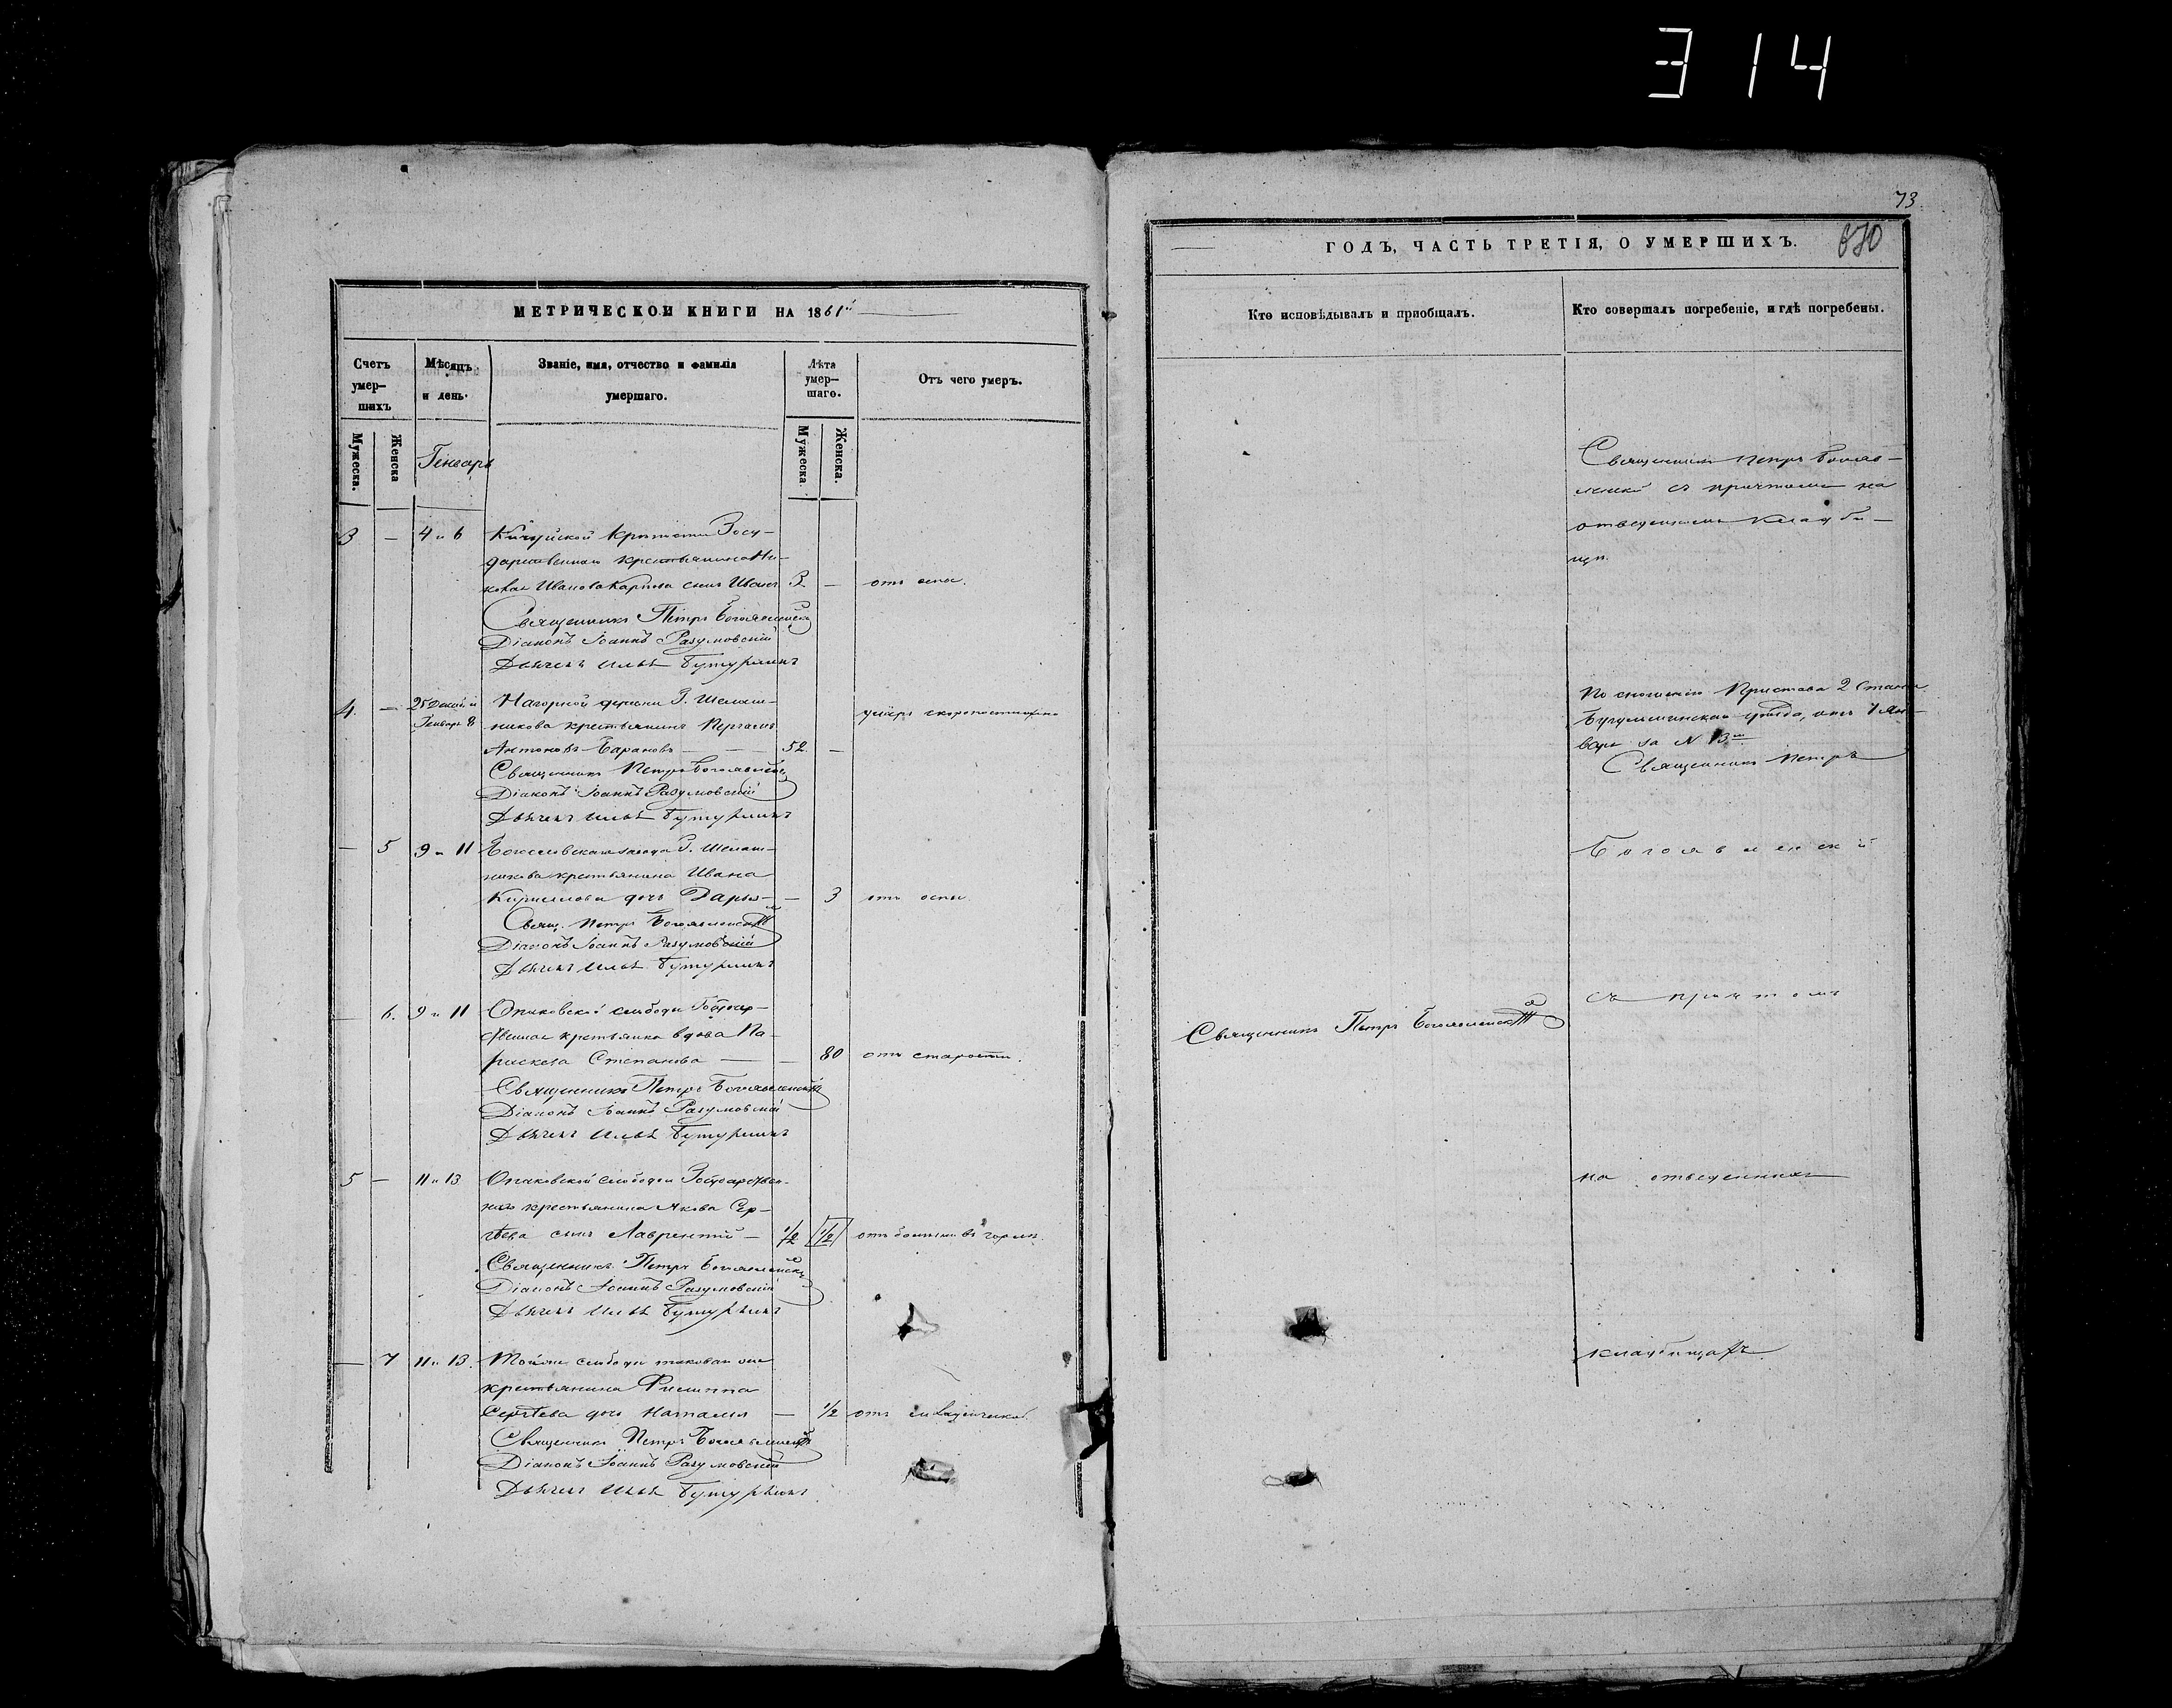 314
МЕТРИЧЕСКОЙ КНИГИ НА 1861й
Счетъ умер-шихъ
Мѣсяцъ и день.
Званіе, имя, отчество и фамилія умершаго.
Лѣта умер-шаго.
Отъ чего умеръ.
Мужеска.
Женска
Мужеска.
Женска.
Генварь
3 — 4 и 6 Кичуйской крѣпости Госу-
дарственнаго крестьянина Ни-
Иванова Карпова сынъ Иванъ 3. — отъ оспы.
Священникъ Петръ Богоявленскій
Діаконъ Іоаннъ Разумовскій
Дьячекъ Илья Бутурлинъ
4. — 25 Декаб. и Нагорной деревни Г. Шелаш-
Генваря 8 никова крестьянинъ
умеръ скоропостижно
Антоновъ Барановъ — 52. —
Священникъ Петръ Богоявленскій
Діаконъ Іоаннъ Разумовскій
Дьячекъ Илья Бутурлинъ
— 5 9 и 11 Богословскаго завода Г. Шелаш-
никова крестьянина Ивана
Кириллова дочь Дарья — — 3 отъ оспы
Свящ. Петръ Богоявленскій
Діаконъ Іоаннъ Разумовскій
Дьячекъ Илья Бутурлинъ
— 6. 9 и 11 слободы Государ-
ственная крестьянка вдова Па-
раскева Степанова — — 80 отъ старости.
Священникъ Петръ Богоявленскій
Діаконъ Іоаннъ Разумовскій
Дьячекъ Илья Бутурлинъ
5 — 11 и 13 слободы Государствен-
наго крестьянина Якова Сер-
гѣева сынъ Лаврентій — 1/2 1/2 отъ болѣзни въ горлѣ.
Священникъ Петръ Богоявленскій
Діаконъ Іоаннъ Разумовскій
Дьячекъ Илья Бутурлинъ
— 7 11 и 13. Тойже слободы таковаго же
крестьянина Филиппа
Сергѣева дочь Наталья — 1/2 отъ младенческой.
Священникъ Петръ Богоявленскій
Діаконъ Іоаннъ Разумовскій
Дьячекъ Илья Бутурлинъ
73
ГОДЪ, ЧАСТЬ ТРЕТІЯ, О УМЕРШИХЪ.
670
Кто исповѣдывалъ и пріобщалъ.
Кто совершалъ погребеніе, и гдѣ погребены.
Священникъ Петръ Богояв-
ленскій съ причтомъ на
отведенномъ кладби-
щѣ.
По сношенію Пристава 2 Стана
Бугульминскаго уѣзда, отъ 1 Ян-
варя за № 13м
Священникъ Петръ
Богоявленскій
съ причтомъ
Священникъ Петръ Богоявленскій
на отведенныхъ
кладбищахъ.